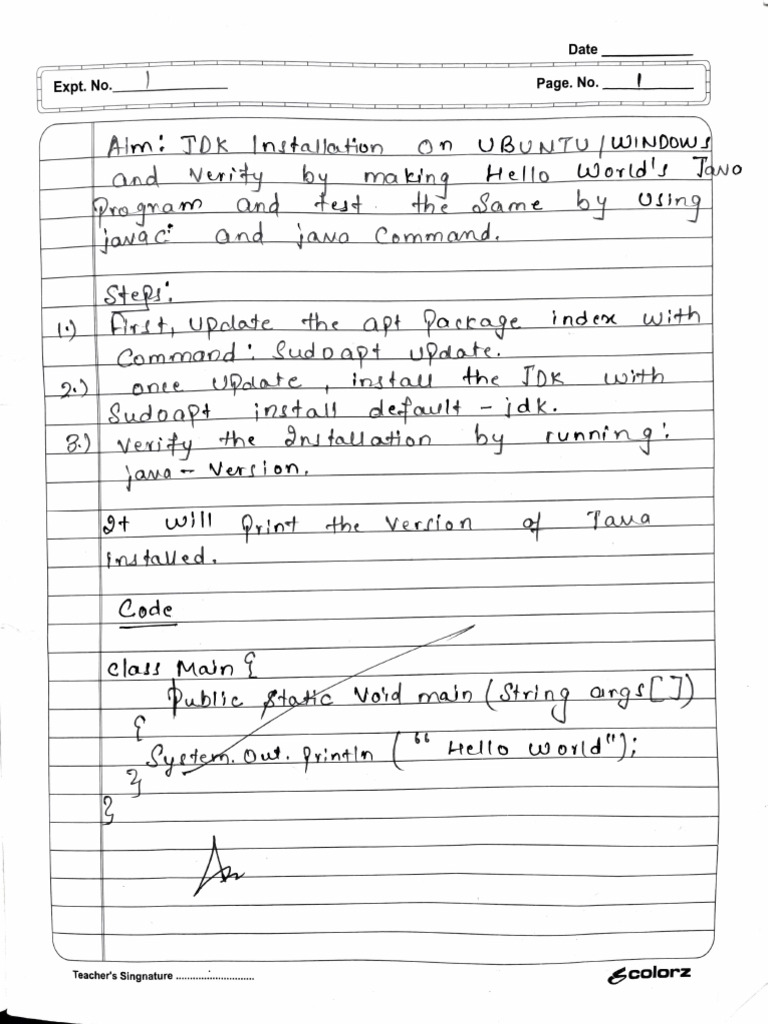 Date
Expt. No. 1
Page. No. 1
Aim: JDK Installation on UBUNTU/WINDOWS
and Verify by making Hello World's Java
Program and test the Same by Using
javac: and java Command.
Steps:
1.) First, Update the apt Package index with
Command: Sudoapt update.
2.) once Update, install the JDK with
Sudoapt install default-jdk.
3.) Verify the Installation by running:
java-Version.
It will Print the Version of Java
installed.
Code
class Main {
Public Static Void main (String args[])
{
System.Out.Println (" Hello World");
}
}
Teacher's Singnature
colorz